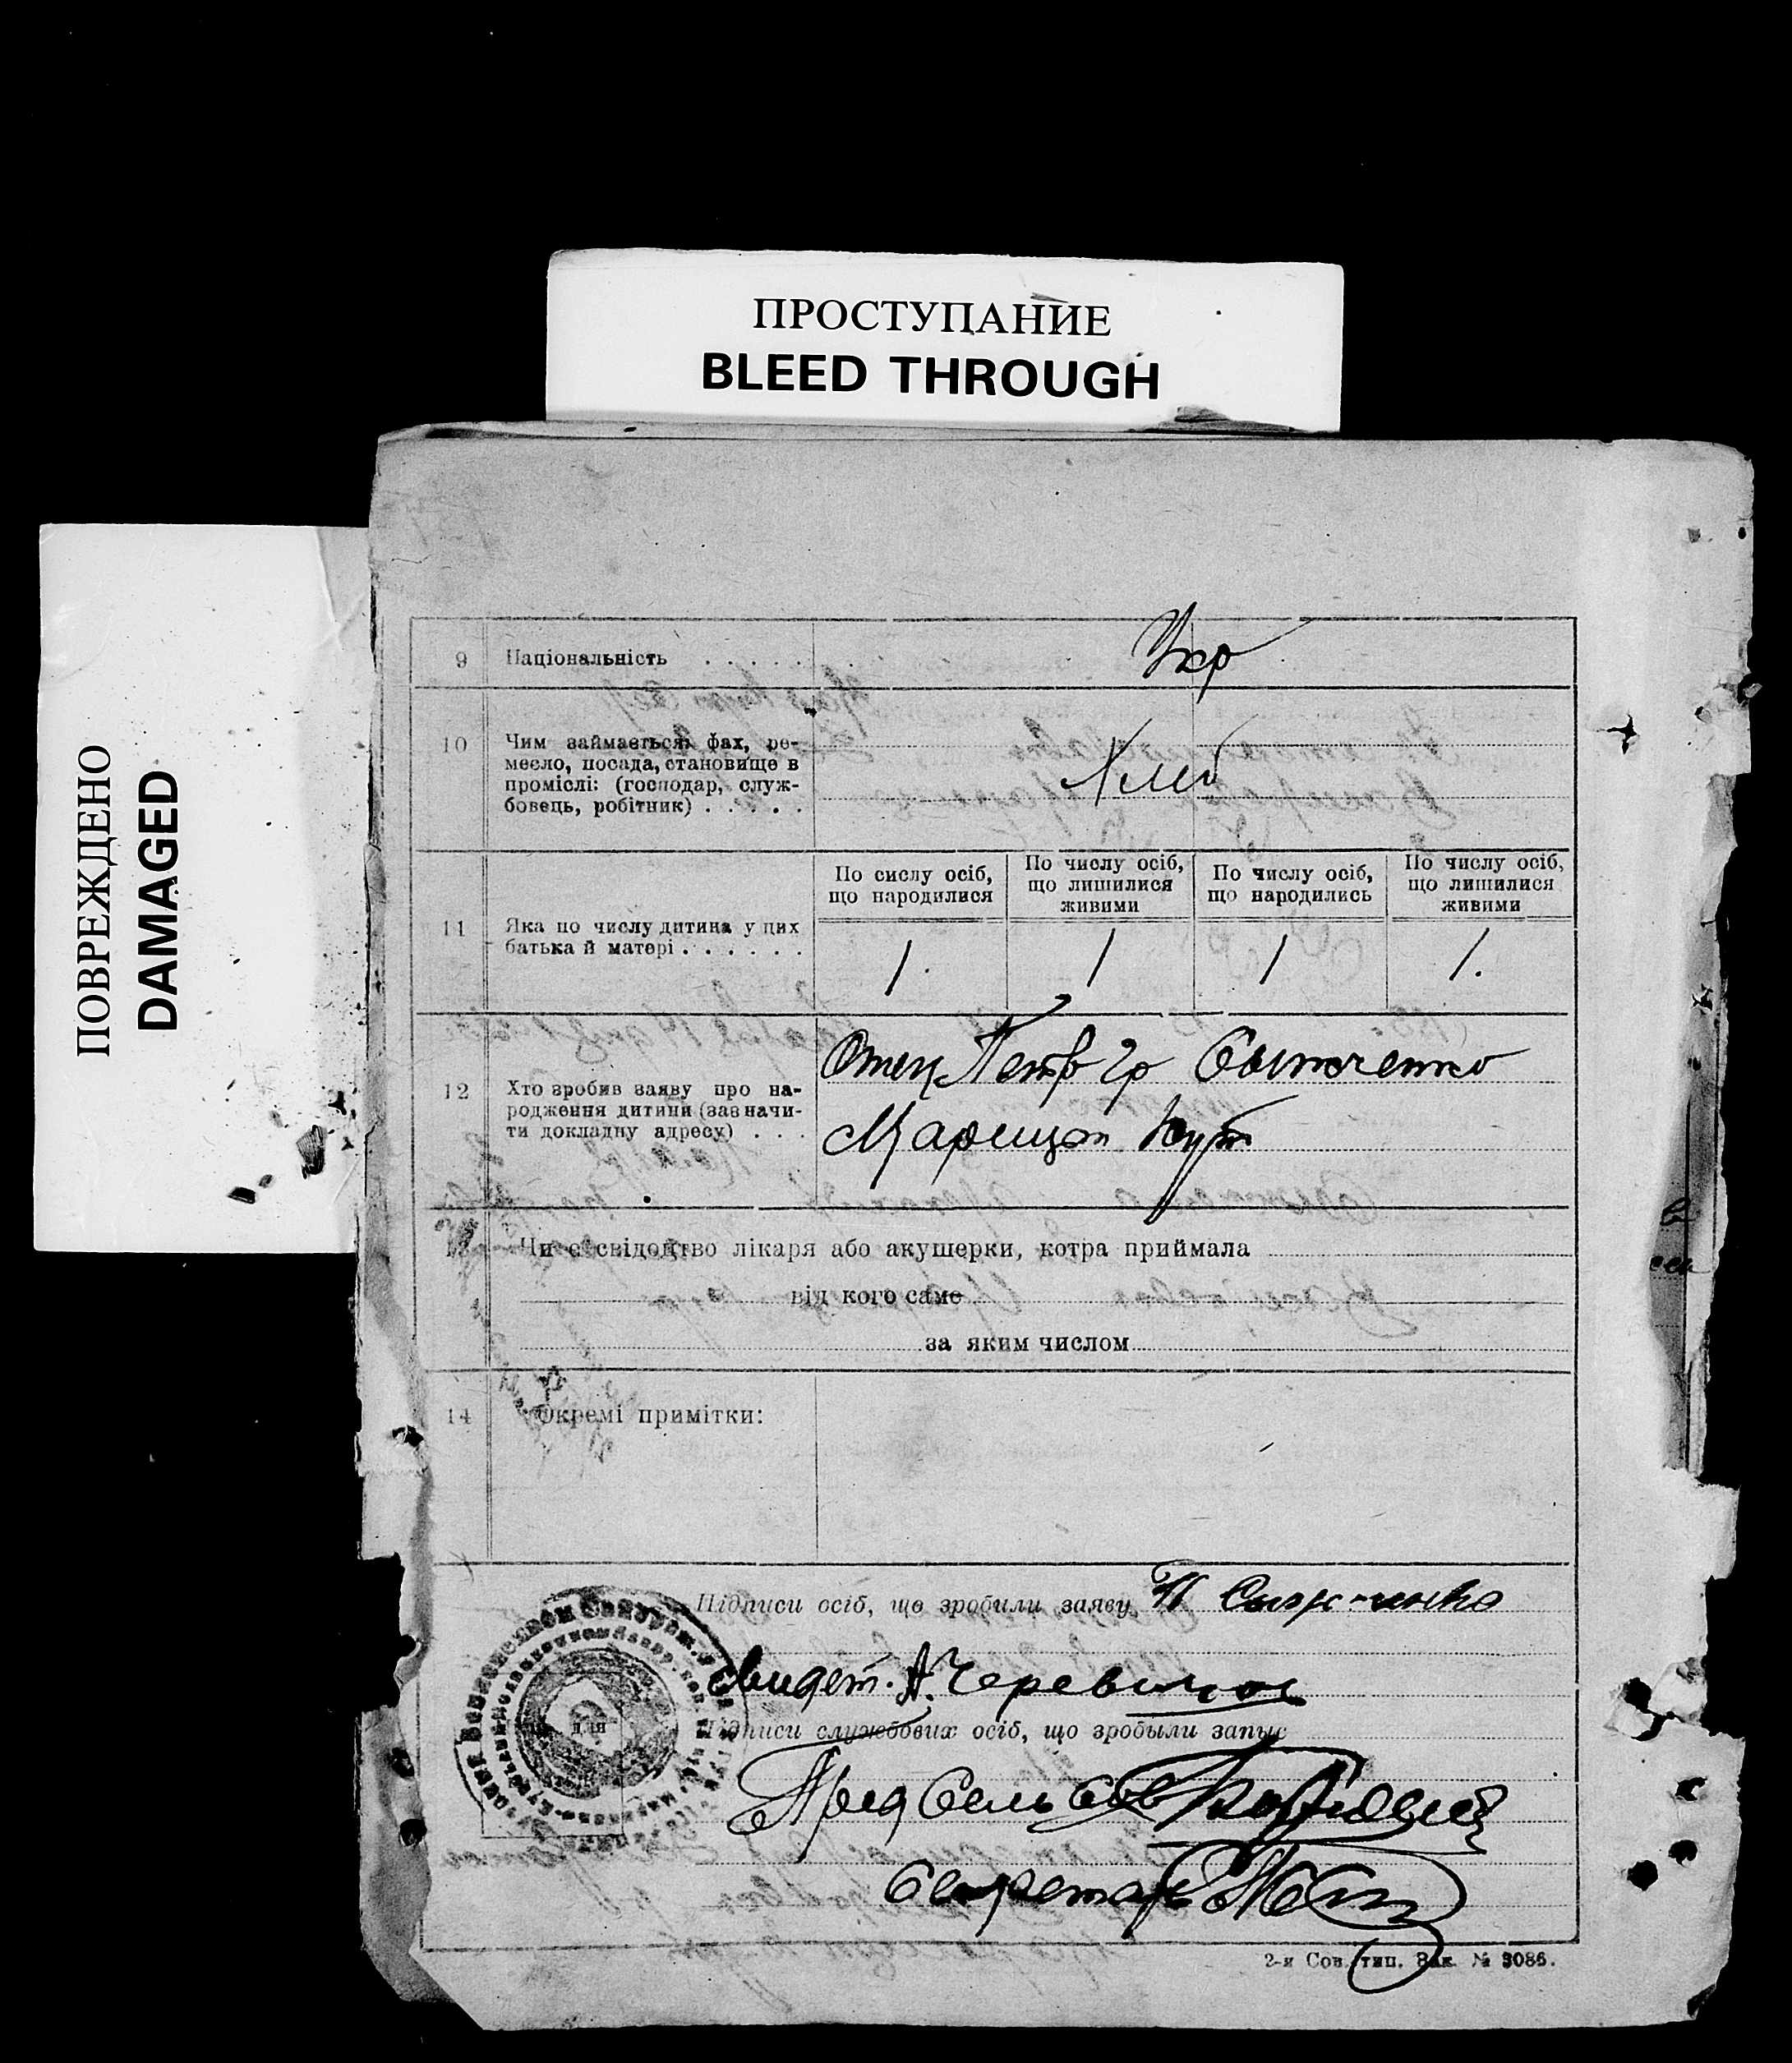 ПРОСТУПАНИЕ
BLEED THROUGH
ПОВРЕЖДЕНО
DAMAGED
9 Національність . . . . . . Укр
10 Чим займається: фах, ре-
месло, посада, становище в
проміслі: (господар, служ-
бовець, робітник) . . . . .
Хлеб
По сислу осіб, що народилися
По числу осіб, що лишилися живими
По числу осіб, що народились
По числу осіб, що лишилися живими
11 Яка по числу дитина у цих
батька й матері . . . . . .
1. 1 1 1.
Отец Петр Гр
12 Хто зробив заяву про на-
родження дитини (зазначи-
ти докладну адресу) . . .
Марицын Кут
Чи є свідоцтво лікаря або акушерки, котра приймала
від кого саме
за яким числом
14 Окремі примітки:
Підписи осіб, що зробили заяву П
свидет. А.
Підписи службових осіб, що зробыли запыс
Пред Сель Сов
Секретарь
2-я Сов. тип. Зак. № 3086.